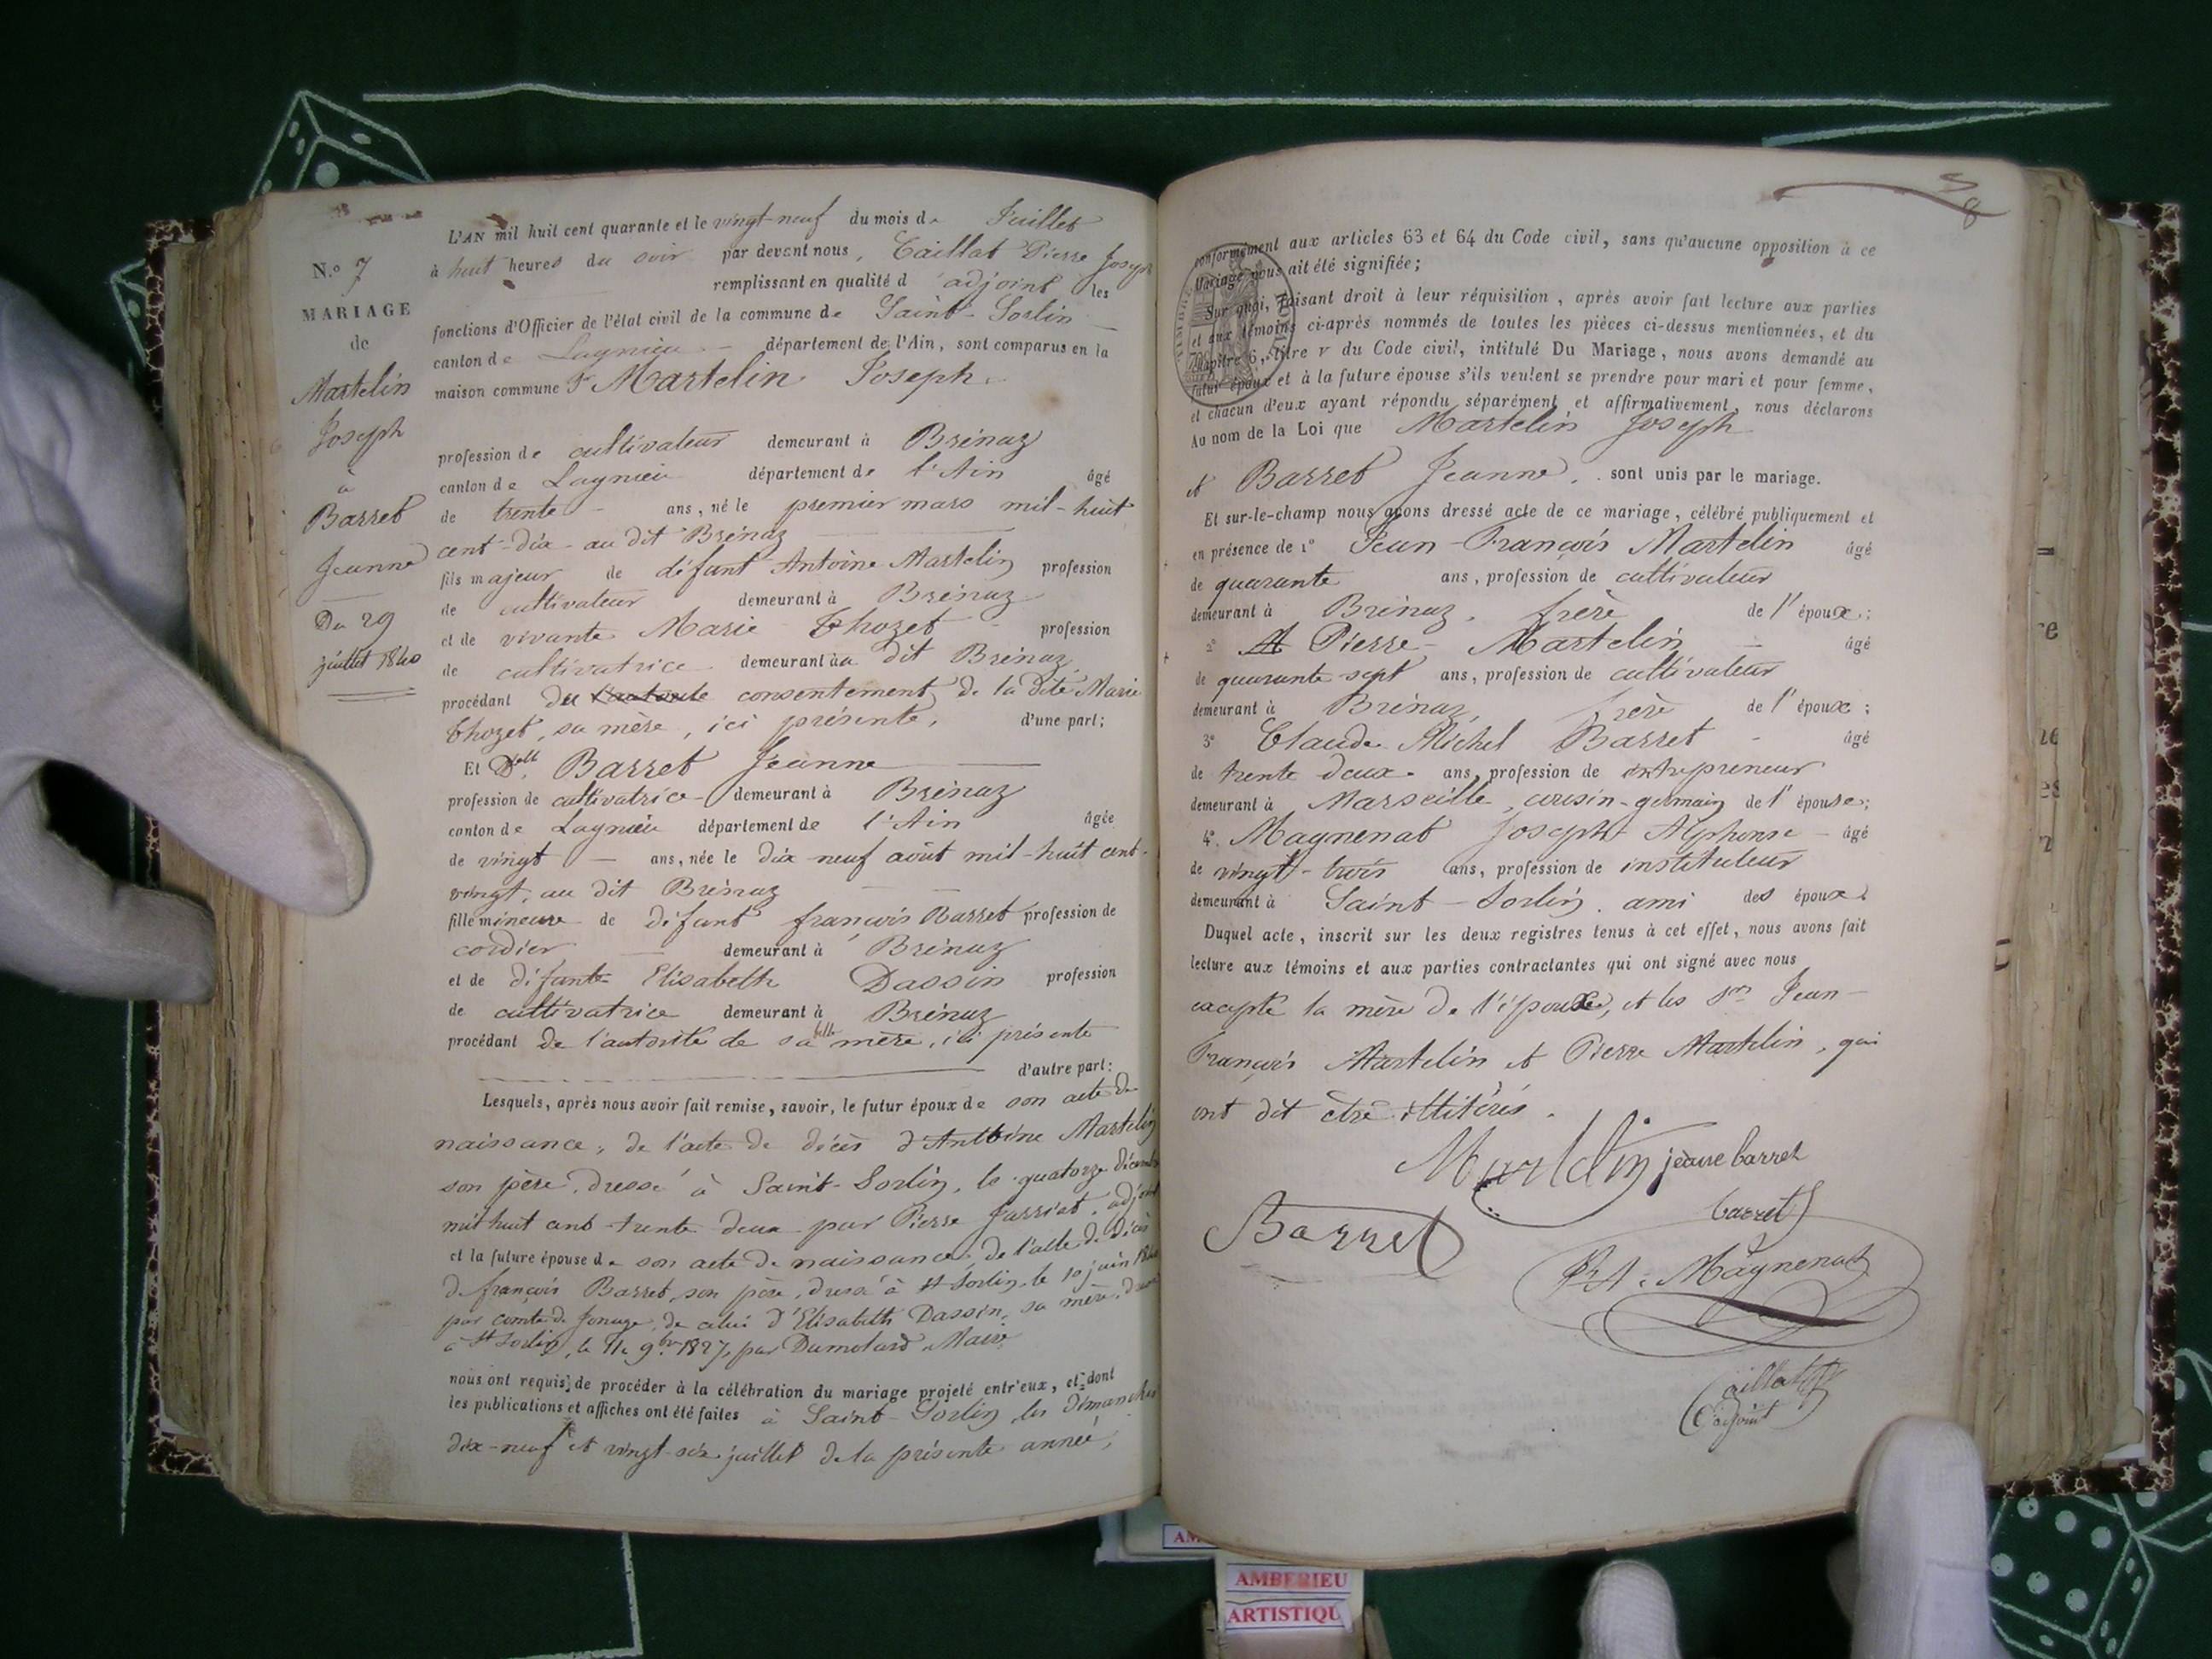 L'AN mil huit cent quarante et le vingt-neuf du mois de Juillet
à huit heures du soir par devant nous, Caillat Pierre Joseph
remplissant en qualité d'adjoint les
fonctions d'Officier de l'état civil de la commune de Saint-Sorlin
canton de Lagnieu département de l'Ain, sont comparus en la
maison commune Sr Martelin Joseph
profession de cultivateur demeurant à Brénaz
canton de Lagnieu département de l'Ain âgé
de trente ans, né le premier mars mil-huit
cent-dix au dit Brénaz
fils majeur de défunt Antoine Martelin profession
de cultivateur demeurant à Brénaz
et de vivante Marie Thozet profession
de cultivatrice demeurant au dit Brénaz
procédant du consentement de la dite Marie
Thozet, sa mère, ici présente, d'une part;
Et Delle Barret Jeanne
profession de cultivatrice demeurant à Brénaz
canton de Lagnieu département de l'Ain âgée
de vingt ans, née le dix neuf août mil-huit cent-
vingt, au dit Brénaz
fille mineure de défunt françois Barret profession de
cordier demeurant à Brénaz
et de défunte Elisabeth Dassin profession
de cultivatrice demeurant à Brénaz
procédant de l'autorité de sa belle mère, ici présente
d'autre part:
Lesquels, après nous avoir fait remise, savoir, le futur époux de son acte de
naissance; de l'acte de décès d'Antoine Martelin
son père, dressé à Saint-Sorlin, le quatorze décembre
mil huit cent trente deux par Pierre Jarriat, adjoint
et la future épouse de son acte de naissance; de l'acte de décès
de françois Barret, son père, dressé à St Sorlin le 10 juin
par de celui d'Elisabeth Dassin, sa mère, dressé
à St Sorlin, le 9bre 1827, par Dumolard Maire
nous ont requis de procéder à la célébration du mariage projeté entr'eux, et dont
les publications et affiches ont été faites à Saint-Sorlin, les dimanches
dix-neuf et vingt-six juillet de la présente année,
N.° 7
MARIAGE
de
Martelin
Joseph
à
Barret
Jeanne
Du 29
juillet 1840
conformément aux articles 63 et 64 du Code civil, sans qu'aucune opposition à ce
Mariage nous ait été signifiée;
Sur quoi, faisant droit à leur réquisition, après avoir fait lecture aux parties
et aux témoins ci-après nommés de toutes les pièces ci-dessus mentionnées, et du
chapitre 6, titre v du Code civil, intitulé Du Mariage, nous avons demandé au
futur époux et à la future épouse s'ils veulent se prendre pour mari et pour femme,
et chacun d'eux ayant répondu séparément et affirmativement, nous déclarons
Au nom de la Loi que Martelin Joseph
et Barret Jeanne, sont unis par le mariage.
Et sur-le-champ nous avons dressé acte de ce mariage, célébré publiquement et
en présence de 1° Jean-François Martelin âgé
de quarante ans, profession de cultivateur
demeurant à Brénaz, frère de l'époux;
2° Pierre Martelin âgé
de quarante sept ans, profession de cultivateur
demeurant à Brénaz, frère de l'époux;
3° Claude Michel Barret âgé
de trente deux ans, profession de entrepreneur
demeurant à Marseille, cousin-germain de l'épouse;
4° Magnenat Joseph Alphonse âgé
de vingt-trois ans, profession de instituteur
demeurant à Saint-Sorlin. ami des époux.
Duquel acte, inscrit sur les deux registres tenus à cet effet, nous avons fait
lecture aux témoins et aux parties contractantes qui ont signé avec nous
excepté la mère de l'époux, et les Srs Jean-
François Martelin et Pierre Martelin, qui
ont dit être illitérés.
Martelin jeanne barret
barret
Barret
Magnenat
Caillat
adjoint
AMBERIEU
ARTISTIQU